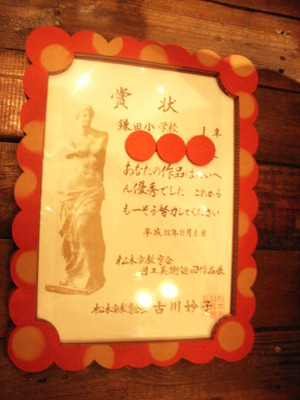 賞状
鎌田小学校 1年
あなたの作品はたいへ
ん優秀でした これから
も一そう努力してください
平成22年11月8日
松本市教育会
図工美術巡回作品展
松本市教育会 古川妙子